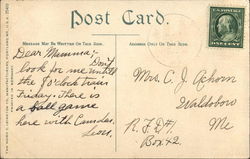 Post Card.
MESSAGE MAY BE WRITTEN ON THIS SIDE.
ADDRESS ONLY ON THIS SIDE.
Dear Mamma:-
Don't
look for me until
the 8 o'clock train
Friday. There is
a ball game
here with Camden.
Leon.
Mrs. C. J. Achorn
Waldoboro
Me
R.F.D#1.
Box 42.
ONE CENT